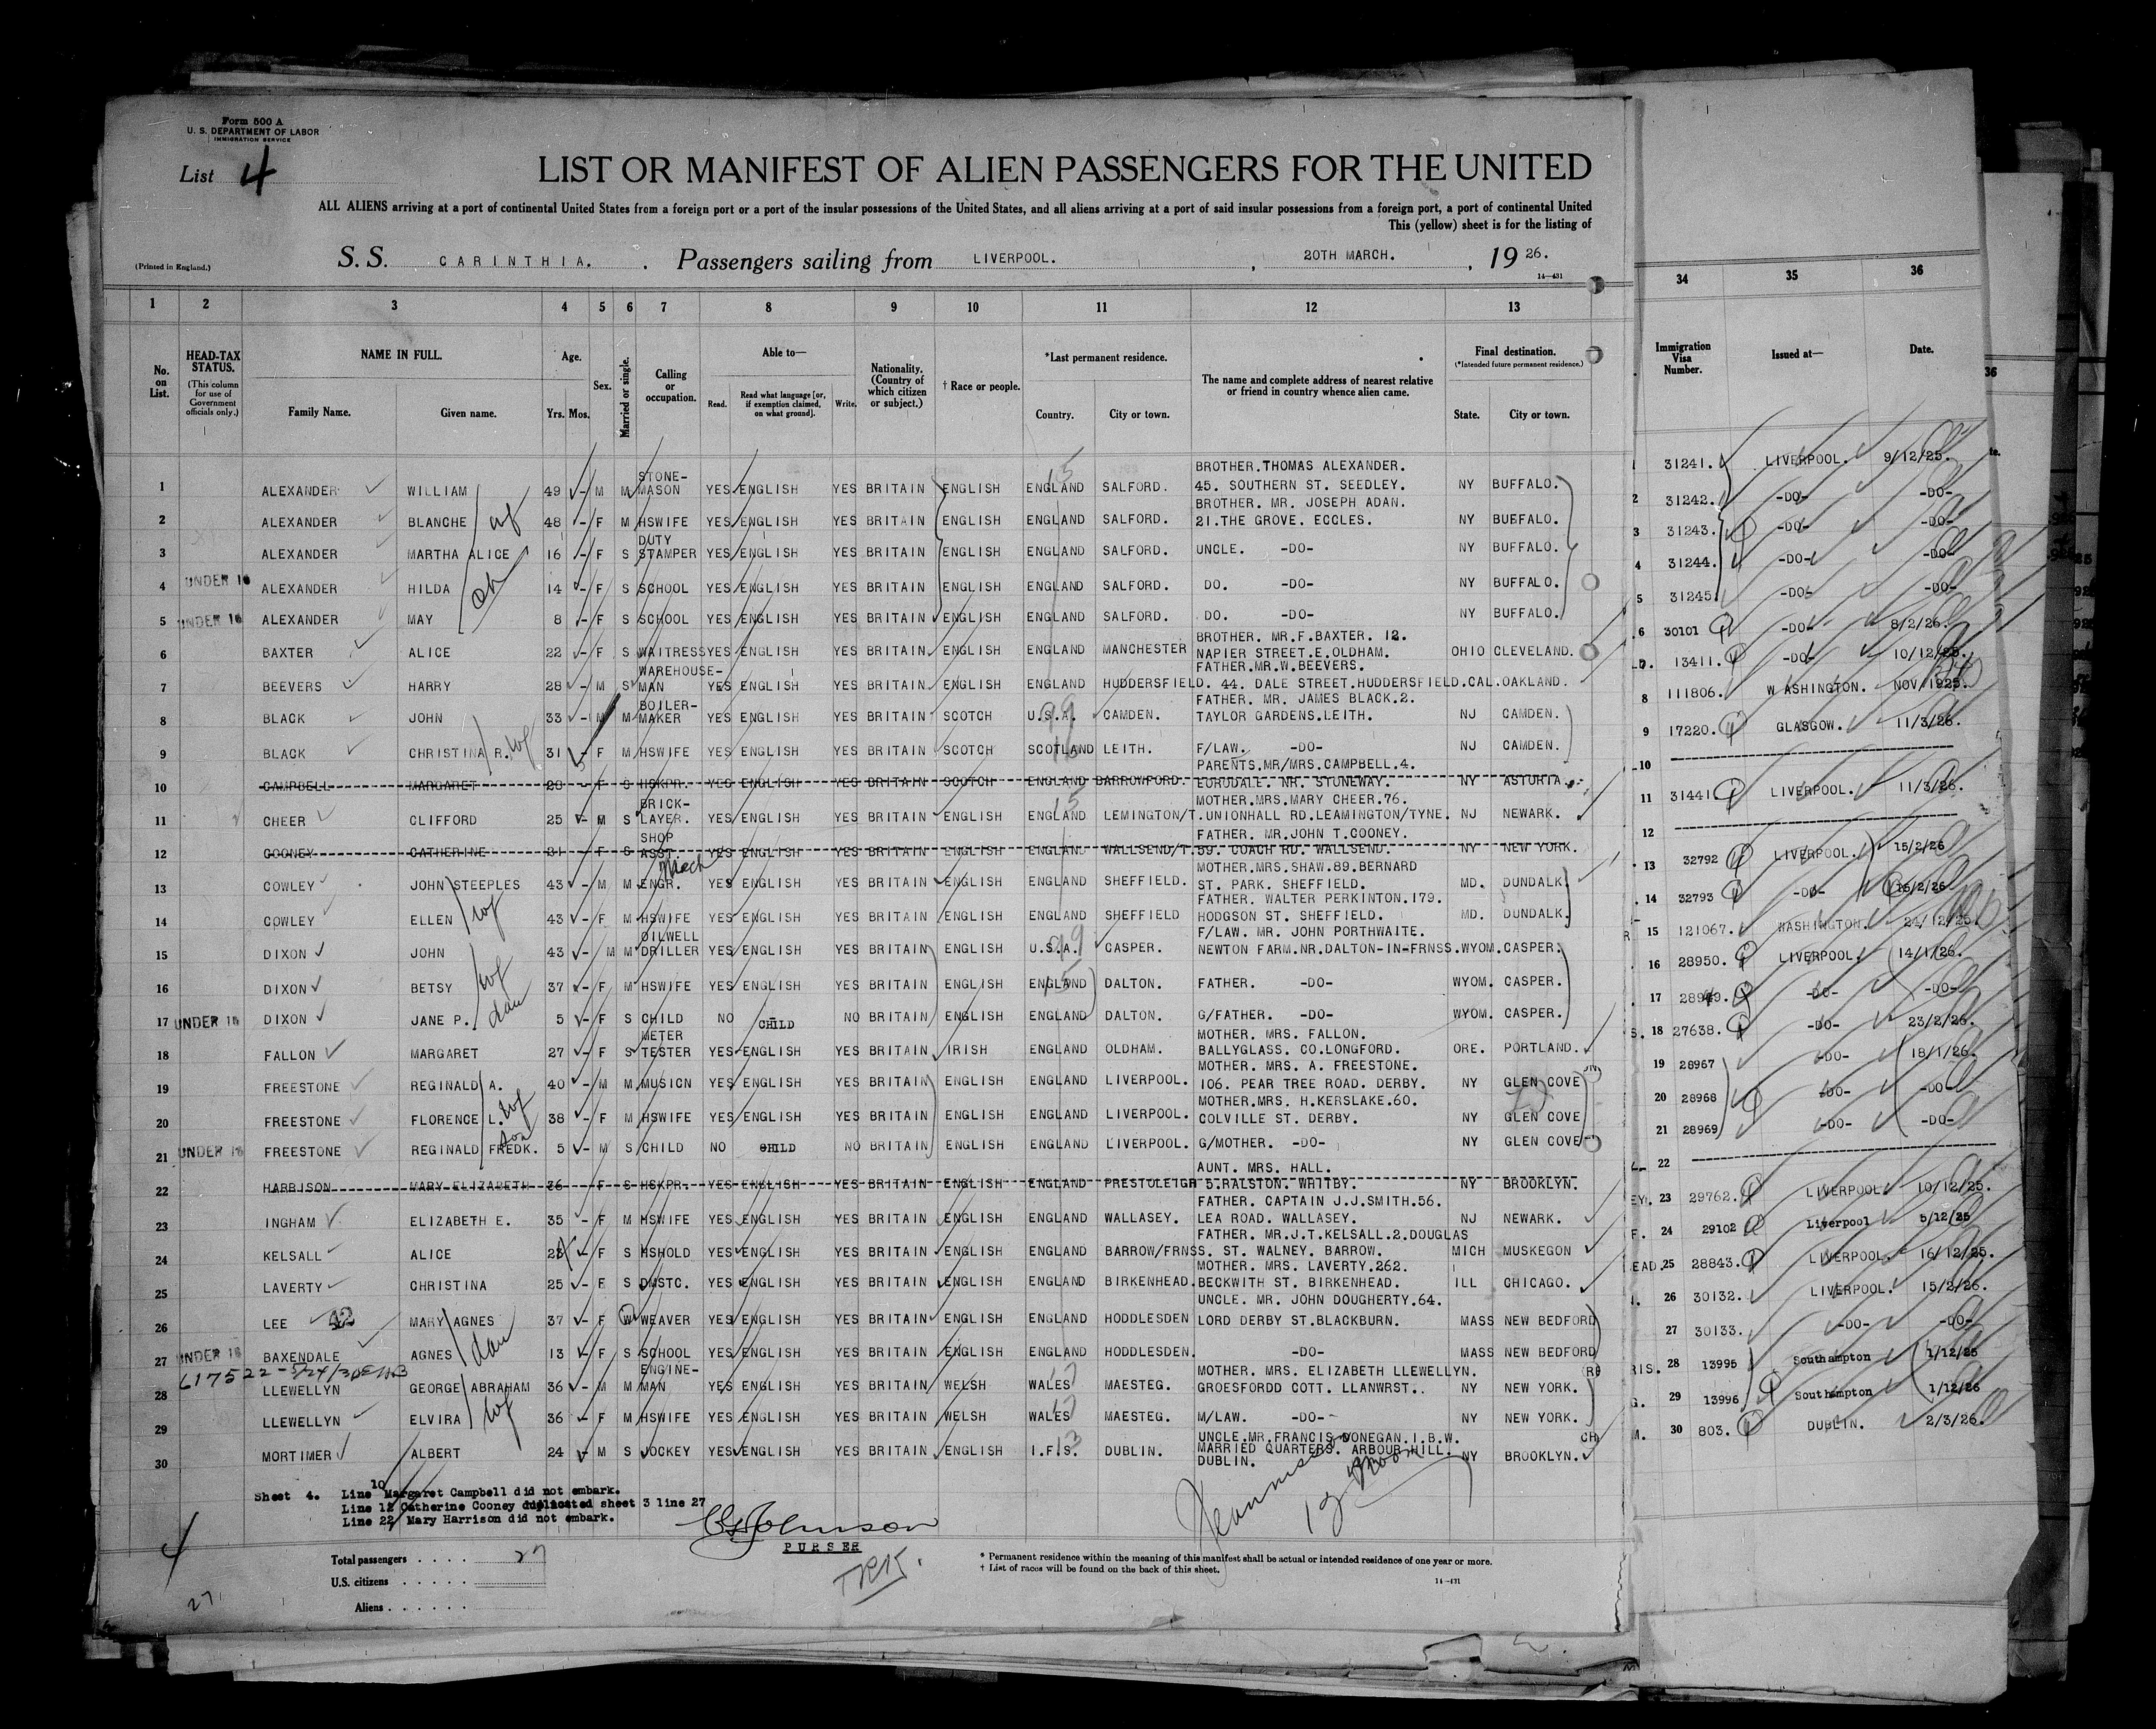 Form 500 A
U. S. DEPARTMENT OF LABOR
IMMIGRATION SERVICE
List 4
LIST OR MANIFEST OF ALIEN PASSENGERS FOR THE UNITED
ALL ALIENS arriving at a port of continental United States from a foreign port or a port of the insular possessions of the United States, and all aliens arriving at a port of said insular possessions from a foreign port, a port of continental United
This (yellow) sheet is for the listing of
(Printed in England.)
S. S. CARINTHIA. Passengers sailing from LIVERPOOL. , 20TH MARCH. , 1926.
14-431
1 2 3 4 5 6 7 8 9 10 11 12 13 34 35 36
No. on List. HEAD-TAX STATUS. (This column for use of Government officials only.) NAME IN FULL. Family Name. Given name. Age. Yrs. Mos. Sex. Married or single. Calling or occupation. Able to— Read. Read what language [or, if exemption claimed, on what ground]. Write. Nationality. (Country of which citizen or subject.) † Race or people. *Last permanent residence. Country. City or town. The name and complete address of nearest relative or friend in country whence alien came. Final destination. (*Intended future permanent residence.) State. City or town. Immigration Visa Number. Issued at— Date.
1 ALEXANDER WILLIAM 49 - M M STONE-MASON YES ENGLISH YES BRITAIN ENGLISH ENGLAND SALFORD. BROTHER.THOMAS ALEXANDER. 45. SOUTHERN ST. SEEDLEY. NY BUFFALO.
2 ALEXANDER BLANCHE wf 48 - F M HSWIFE YES ENGLISH YES BRITAIN ENGLISH ENGLAND SALFORD. BROTHER. MR. JOSEPH ADAN. 21.THE GROVE. ECCLES. NY BUFFALO.
3 ALEXANDER MARTHA ALICE 16 - F S DUTY STAMPER YES ENGLISH YES BRITAIN ENGLISH ENGLAND SALFORD. UNCLE. -DO- NY BUFFALO.
4 UNDER 16 ALEXANDER HILDA 14 - F S SCHOOL YES ENGLISH YES BRITAIN ENGLISH ENGLAND SALFORD. DO. -DO- NY BUFFALO.
5 UNDER 16 ALEXANDER MAY 8 - F S SCHOOL YES ENGLISH YES BRITAIN ENGLISH ENGLAND SALFORD. DO. -DO- NY BUFFALO.
6 BAXTER ALICE 22 - F S WAITRESS YES ENGLISH YES BRITAIN ENGLISH ENGLAND MANCHESTER BROTHER. MR.F.BAXTER. 12. NAPIER STREET.E.OLDHAM. OHIO CLEVELAND.
7 BEEVERS HARRY 28 - M S WAREHOUSE-MAN YES ENGLISH YES BRITAIN ENGLISH ENGLAND HUDDERSFIELD. FATHER.MR.W.BEEVERS. 44. DALE STREET.HUDDERSFIELD. CAL. OAKLAND.
8 BLACK JOHN 33 - M M BOILER-MAKER YES ENGLISH YES BRITAIN SCOTCH U.S.A. CAMDEN. FATHER. MR. JAMES BLACK.2. TAYLOR GARDENS.LEITH. NJ CAMDEN.
9 BLACK CHRISTINA R. wf 31 - F M HSWIFE YES ENGLISH YES BRITAIN SCOTCH SCOTLAND LEITH. F/LAW. -DO- NJ CAMDEN.
10 CAMPBELL MARGARET 28 - F S HSKPR. YES ENGLISH YES BRITAIN SCOTCH ENGLAND BARROWFORD. PARENTS.MR/MRS.CAMPBELL.4. NR. STONEWAY. NY ASTORIA.
11 CHEER CLIFFORD 25 - M S BRICK-LAYER. YES ENGLISH YES BRITAIN ENGLISH ENGLAND LEMINGTON/T. MOTHER.MRS.MARY CHEER.76. UNIONHALL RD.LEAMINGTON/TYNE. NJ NEWARK.
12 COONEY CATHERINE 21 - F S SHOP ASST. YES ENGLISH YES BRITAIN ENGLISH ENGLAND WALLSEND/T. FATHER. MR.JOHN T.COONEY. 59. COACH RD. WALLSEND. NY NEW YORK.
13 COWLEY JOHN STEEPLES 43 - M M Mech ENGR. YES ENGLISH YES BRITAIN ENGLISH ENGLAND SHEFFIELD. MOTHER.MRS.SHAW.89.BERNARD ST. PARK. SHEFFIELD. MD. DUNDALK.
14 COWLEY ELLEN wf 43 - F M HSWIFE YES ENGLISH YES BRITAIN ENGLISH ENGLAND SHEFFIELD FATHER. WALTER PERKINTON.179. HODGSON ST. SHEFFIELD. MD. DUNDALK.
15 DIXON JOHN 43 - M M OILWELL DRILLER YES ENGLISH YES BRITAIN ENGLISH U.S.A. CASPER. F/LAW. MR. JOHN PORTHWAITE. NEWTON FARM.NR.DALTON-IN-FRNSS. WYOM. CASPER.
16 DIXON BETSY wf 37 - F M HSWIFE YES ENGLISH YES BRITAIN ENGLISH ENGLAND DALTON. FATHER. -DO- WYOM. CASPER.
17 UNDER 16 DIXON JANE P. dau 5 - F S CHILD NO CHILD NO BRITAIN ENGLISH ENGLAND DALTON. G/FATHER. -DO- WYOM. CASPER.
18 FALLON MARGARET 27 - F S METER TESTER YES ENGLISH YES BRITAIN IRISH ENGLAND OLDHAM. MOTHER. MRS. FALLON. BALLYGLASS. CO.LONGFORD. ORE. PORTLAND.
19 FREESTONE REGINALD A. 40 - M M MUSICN YES ENGLISH YES BRITAIN ENGLISH ENGLAND LIVERPOOL. MOTHER. MRS. A. FREESTONE. 106. PEAR TREE ROAD. DERBY. NY GLEN COVE
20 FREESTONE FLORENCE L. wf 38 - F M HSWIFE YES ENGLISH YES BRITAIN ENGLISH ENGLAND LIVERPOOL. MOTHER.MRS. H.KERSLAKE.60. COLVILLE ST. DERBY. NY GLEN COVE
21 UNDER 16 FREESTONE REGINALD FREDK. son 5 - M S CHILD NO CHILD NO BRITAIN ENGLISH ENGLAND LIVERPOOL. G/MOTHER. -DO- NY GLEN COVE
22 HARRISON MARY ELIZABETH 36 F S HSKPR. YES ENGLISH YES BRITAIN ENGLISH ENGLAND AUNT. MRS. HALL. 5.RALSTON. WHITBY. NY BROOKLYN.
23 INGHAM ELIZABETH E. 35 - F M HSWIFE YES ENGLISH YES BRITAIN ENGLISH ENGLAND WALLASEY. FATHER. CAPTAIN J.J.SMITH.56. LEA ROAD. WALLASEY. NJ NEWARK.
24 KELSALL ALICE - F S HSHOLD YES ENGLISH YES BRITAIN ENGLISH ENGLAND BARROW/FRNSS. FATHER. MR.J.T.KELSALL.2.DOUGLAS ST. WALNEY. BARROW. MICH MUSKEGON
25 LAVERTY CHRISTINA 25 - F S DMSTC. YES ENGLISH YES BRITAIN ENGLISH ENGLAND BIRKENHEAD. MOTHER. MRS. LAVERTY.262. BECKWITH ST. BIRKENHEAD. ILL CHICAGO.
26 LEE MARY AGNES 37 - F W WEAVER YES ENGLISH YES BRITAIN ENGLISH ENGLAND HODDLESDEN UNCLE. MR. JOHN DOUGHERTY.64. LORD DERBY ST.BLACKBURN. MASS NEW BEDFORD
27 UNDER 16 BAXENDALE AGNES dau 13 - F S SCHOOL YES ENGLISH YES BRITAIN ENGLISH ENGLAND HODDLESDEN. -DO- MASS NEW BEDFORD
28 LLEWELLYN GEORGE ABRAHAM 36 - M M ENGINE-MAN YES ENGLISH YES BRITAIN WELSH WALES MAESTEG. MOTHER. MRS. ELIZABETH LLEWELLYN. GROESFORDD COTT. LLANWRST. NY NEW YORK.
29 LLEWELLYN ELVIRA wf 36 - F M HSWIFE YES ENGLISH YES BRITAIN WELSH WALES MAESTEG. M/LAW. -DO- NY NEW YORK.
30 MORTIMER ALBERT 24 - M S JOCKEY YES ENGLISH YES BRITAIN ENGLISH I.F.S. DUBLIN. UNCLE.MR.FRANCIS DONEGAN.I.B.W. MARRIED QUARTERS. ARBOUR HILL. DUBLIN. NY BROOKLYN.
1 31241. LIVERPOOL. 9/12/25.
2 31242. -DO- -DO-
3 31243. -DO- -DO-
4 31244. -DO- -DO-
5 31245. -DO- -DO-
6 30101 -DO- 8/2/26.
13411. -DO- 10/12/25.
8 111806. WASHINGTON. NOV/1925.
9 17220. GLASGOW. 11/3/26.
10
11 31441. LIVERPOOL. 11/3/26.
12
13 32792 LIVERPOOL. 15/2/26
14 32793 -DO- 15/2/26
15 121067. WASHINGTON. 24/12/25.
16 28950. LIVERPOOL. 14/1/26.
17 -DO- -DO-
18 27638. -DO- 23/2/26.
19 28967 -DO- 18/1/26.
20 28968 -DO- -DO-
21 28969 -DO- -DO-
22
23 29762. LIVERPOOL. 10/12/25.
24 29102 Liverpool 5/12/25
25 28843. LIVERPOOL. 16/12/25.
26 30132. LIVERPOOL. 15/2/26.
27 30133. -DO- -DO-
28 13995 Southampton 1/12/25
29 13996 Southampton 1/12/25
30 803. DUBLIN. 2/3/26.
Sheet 4. Line 10 Margaret Campbell did not embark.
Line 12 Catherine Cooney duplicated sheet 3 line 27
Line 22 Mary Harrison did not embark.
Johnson
PURSER
Total passengers . . . . 27
U.S. citizens . . . . .
Aliens . . . . . .
4
27
* Permanent residence within the meaning of this manifest shall be actual or intended residence of one year or more.
† List of races will be found on the back of this sheet.
14-431